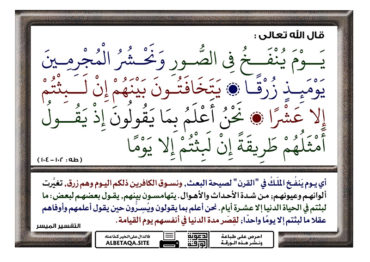 قال الله تعالى :
يَـــوْمَ يُنْفَـــخُ فِي الصُّـــورِ وَنَحْـــشُرُ الْمُجْرِمِـــينَ
يَوْمَئِـــذٍ زُرْقًـــا ۝ يَتَخَافَتُـــونَ بَيْنَهُـــمْ إِنْ لَـــبِثْتُمْ
إِلَّا عَشْرًا ۝ نَحْنُ أَعْلَمُ بِمَا يَقُولُونَ إِذْ يَقُـــولُ
أَمْثَلُهُمْ طَرِيقَةً إِنْ لَبِثْتُمْ إِلَّا يَوْمًا
(طه: ١٠٢-١٠٤)
أي يوم ينفخ الملك في "القرن" لصيحة البعث، ونسوق الكافرين ذلكم اليوم وهم زرق، تغيرت
ألوانهم وعيونهم؛ من شدة الأحداث والأهوال. يتهامسون بينهم، يقول بعضهم لبعض: ما
لبثتم في الحياة الدنيا إلا عشرة أيام. نحن أعلم بما يقولون ويسرون حين يقول أعلمهم وأوفاهم
عقلا ما لبثتم إلا يومًا واحدًا؛ لقصر مدة الدنيا في أنفسهم يوم القيامة.
التفسير الميسر
احرص على طباعة
ونشر هذه الورقة
ALBETAQA.SITE